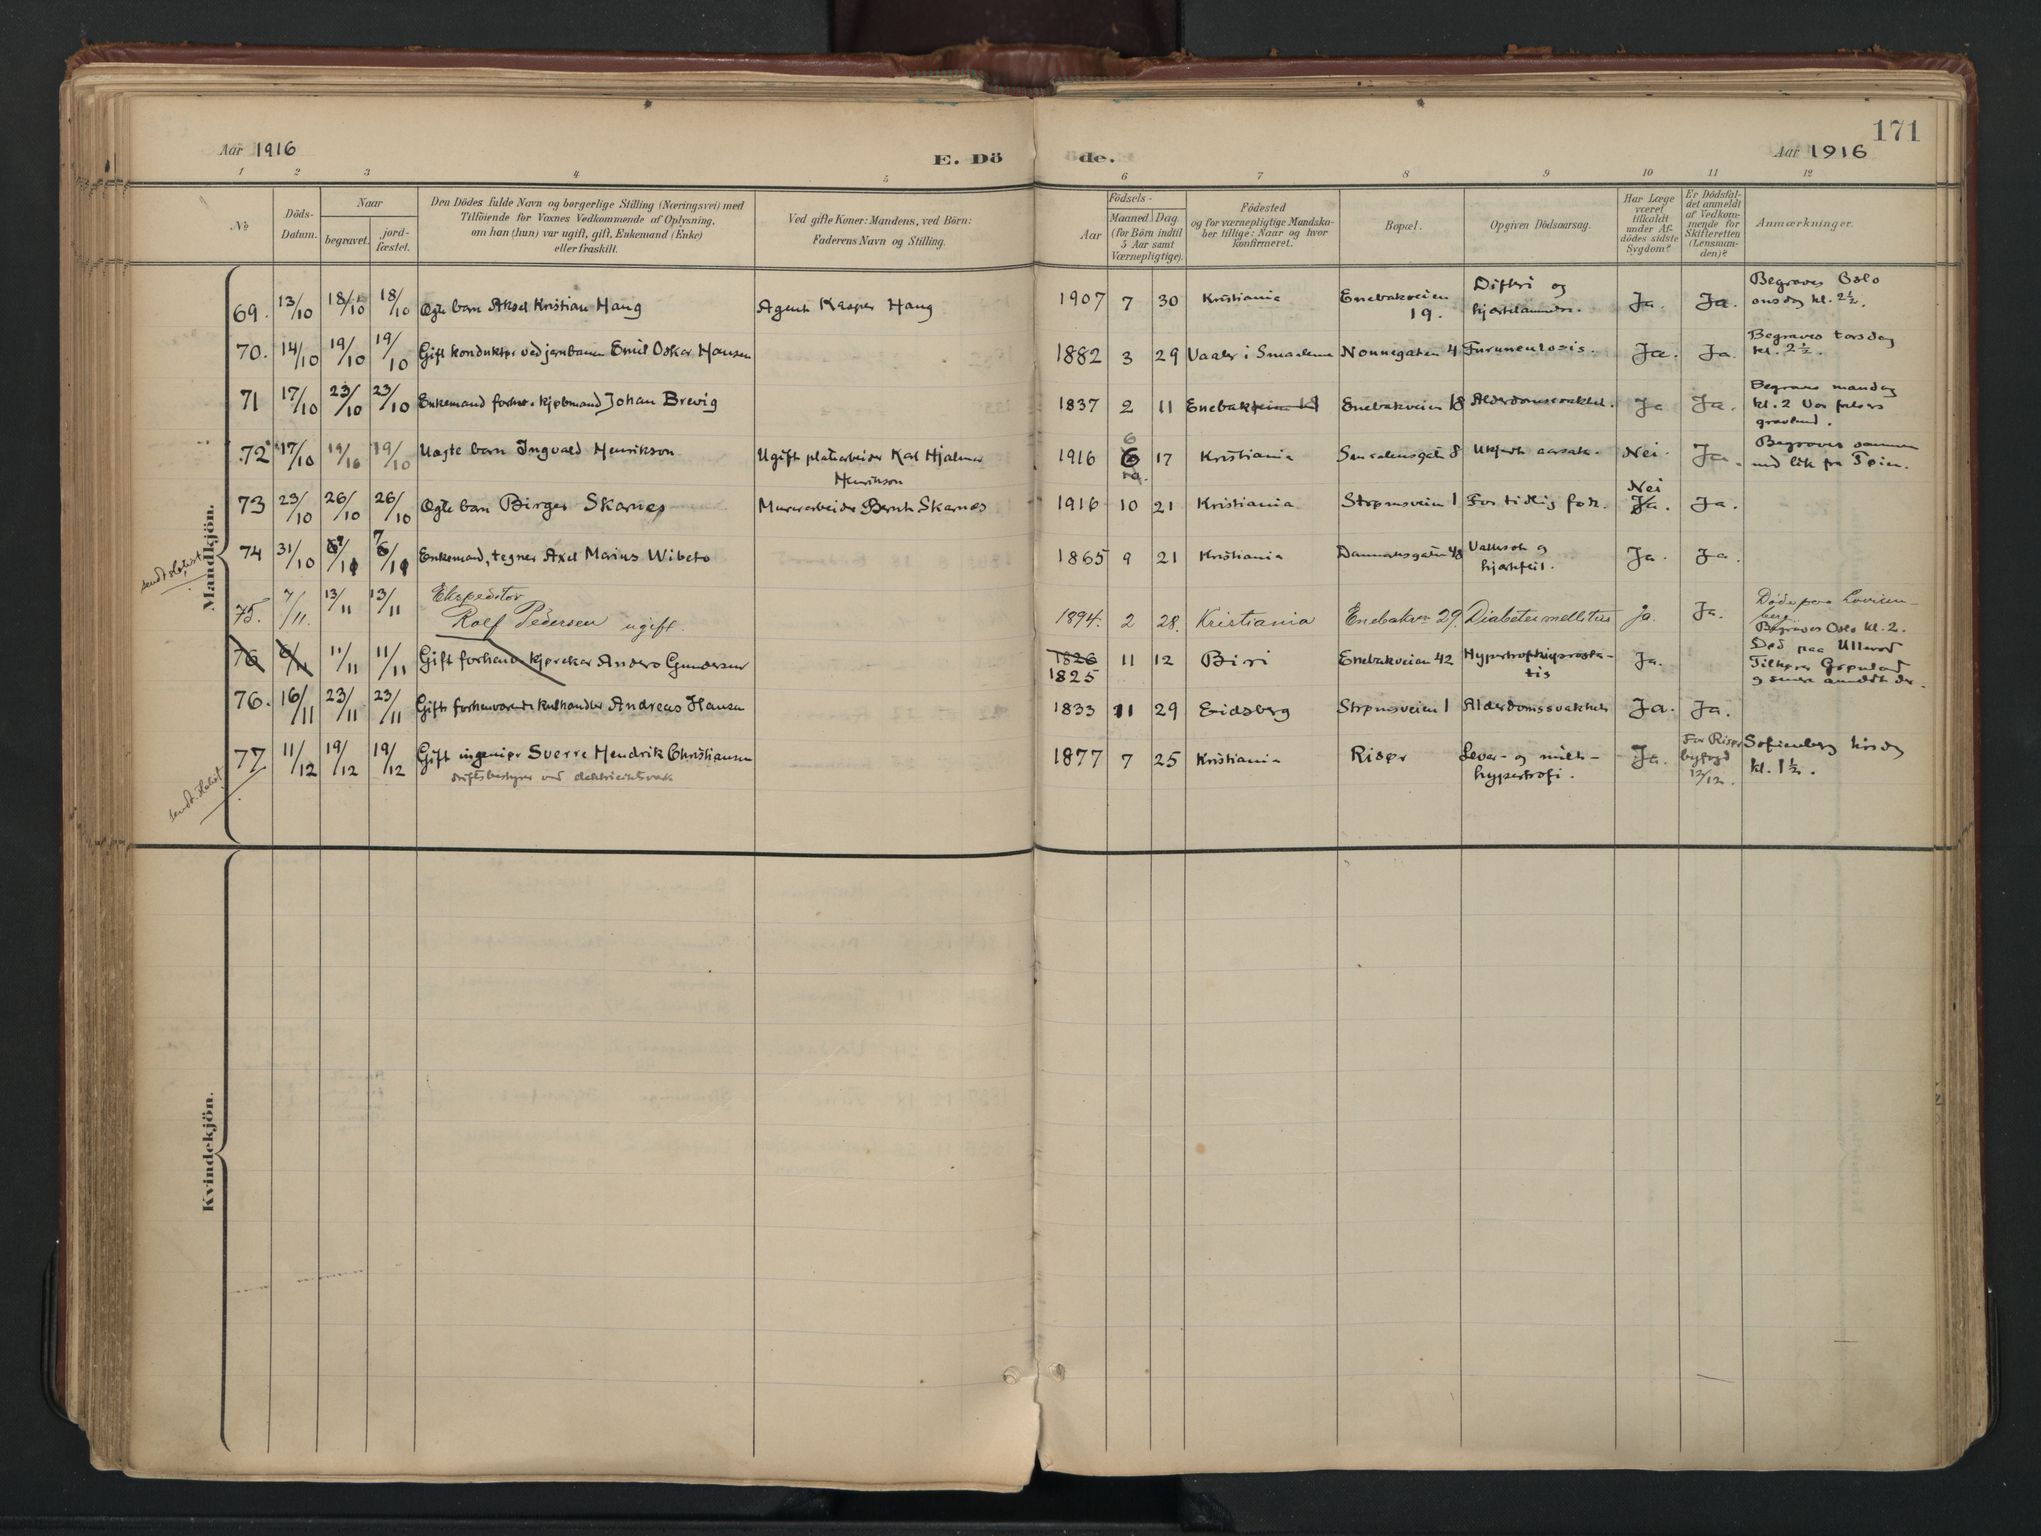 171
Aar 1916 E. Dö de. Aar 1916
1 2 3 4 5 6 7 8 9 10 11 12
No
Döds-Datum.
Naar
begravet.
jord-fæstet.
Den Dödes fulde Navn og borgerlige Stilling (Næringsvei) med
Tilföiende for Voxnes Vedkommende af Oplysning,
om han (hun) var ugift, gift, Enkemand (Enke)
eller fraskilt.
Ved gifte Koner: Mandens, ved Börn:
Faderens Navn og Stilling.
Födsels-
Aar
Maaned Dag.
(for Börn indtil
5 Aar samt
Værnepligtige).
Födested
og for værnepligtige Mandska-
ber tillige: Naar og hvor
konfirmeret.
Bopæl.
Opgiven Dödsaarsag.
Har Læge
været
tilkaldt
under Af-
dödes sidste
Sygdom?
Er Dödsfal-
det anmeldt
af Vedkom-
mende for
Skifteretten
(Lensman-
den)?
Anmærkninger.
Mandkjön.
69. 13/10 18/10 18/10 Ægte barn Aksel Kristian Haug Agent Kasper Haug 1907 7 30 Kristiania Enebakveien 19. Difteri og Ja. Ja. Begraves Oslo
onsdag kl. 2½.
70. 14/10 19/10 19/10 Gift konduktør ved jernbanen Emil Oskar Hansen 1882 3 29 Vaaler i Smaalene Nonnegaten 4 Furunculosis. Ja. Ja. Begraves torsdag
kl. 2½.
71 17/10 23/10 23/10 Enkemand kjøbmand Johan Brevig 1837 2 11 Enebak Enebakveien 18 Alderdomssvakhet. Ja Ja. Begraves mandag
kl. 2 Vor frelsers
gravlund.
72 17/10 19/10 19/10 Uægte barn Ingvald Henrikson Ugift platearbeider Karl Hjalmar
Henrikson 1916 6 17 Kristiania Smaalensgaten 8 Ukjendt aarsak. Nei. Ja. Begraves sammen
med lik fra Tøien.
73 23/10 26/10 26/10 Ægte barn Birger Skarnes Murerarbeider Bernt Skarnes 1916 10 21 Kristiania Strømsveien 1 For tidlig født. Nei Ja. Ja.
74 31/10 7/11 7/11 Enkemand, tegner Axel Marius Wibeto 1865 9 21 Kristiania Danmarksgaten 48 Vattersot og
hjertefeil. Ja. Ja.
75. 7/11. 13/11 13/11 Ekspeditør
Rolf Pedersen ugift. 1894. 2 28. Kristiania Enebakvn 29. Diabetes mellitus ja. Ja. Begraves Oslo kl. 2.
76 11/11 11/11 Gift Anders Gundersen 1826
1825 11 12 Biri Enebakveien 42 Ja. Død paa Ullevål
76. 16/11 23/11 23/11 Gift forhenværende kulhandler Andreas Hansen 1833 11 29 Eidsberg Strømsveien 1 Alderdomssvakhet Ja. Ja.
77 11/12 19/12 19/12 Gift ingeniør Sverre Hendrik Christiansen
driftsbestyrer ved elektricitetsverk 1877 7 25 Kristiania Risør Lever- og milt-
hypertrofi. Ja. For Risør
byfogd
12/12. Sofienberg tirsdag
kl. 1½.
Kvindekjön.